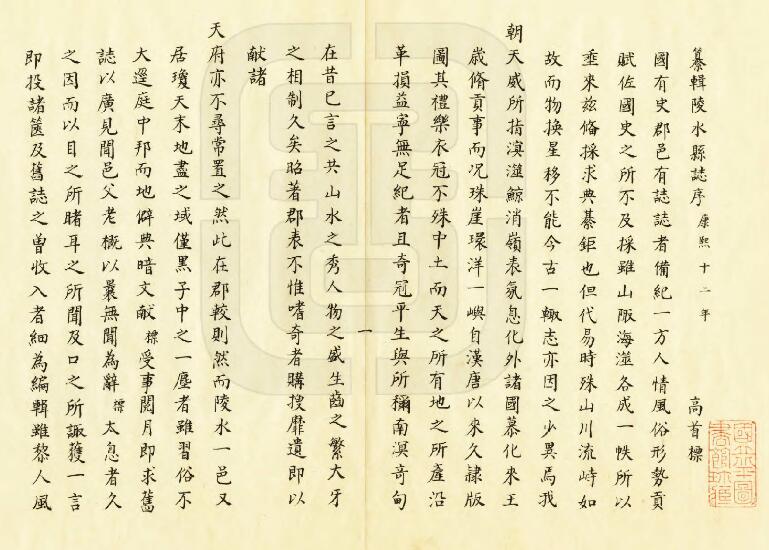 纂輯陵水縣誌序 康熙十二年 高首標
國有史郡邑有誌誌者備紀一方人情風俗形勢貢
賦佐國史之所不及採雖山陬海澨各成一帙所以
垂來茲脩採求典綦鉅也但代易時殊山川流峙如
故而物換星移不能今古一轍志亦因之少異焉我
朝天威所指溟澨鯨消嶺表氛息化外諸國慕化來王
歲脩貢事而况珠崖環洋一嶼自漢唐以來久隸版
圖其禮樂衣冠不殊中土而天之所有地之所產沿
革損益寧無足紀者且奇冠平生與所稱南溟奇甸
一
在昔已言之共山水之秀人物之盛生齒之繁大牙
之相制久矣昭著郡表不惟嗜奇者購搜靡遺即以
献諸
天府亦不尋常置之然此在郡較則然而陵水一邑又
居瓊天末地盡之域僅黑子中之一塵者雖習俗不
大逕庭中邦而地僻典暗文献標受事閱月即求舊
誌以廣見聞邑父老概以曩無聞為辭標太息者久
之因而以目之所睹耳之所聞及口之所諏蒦一言
即投諸篋及舊誌之曾收入者細為編輯雖黎人風